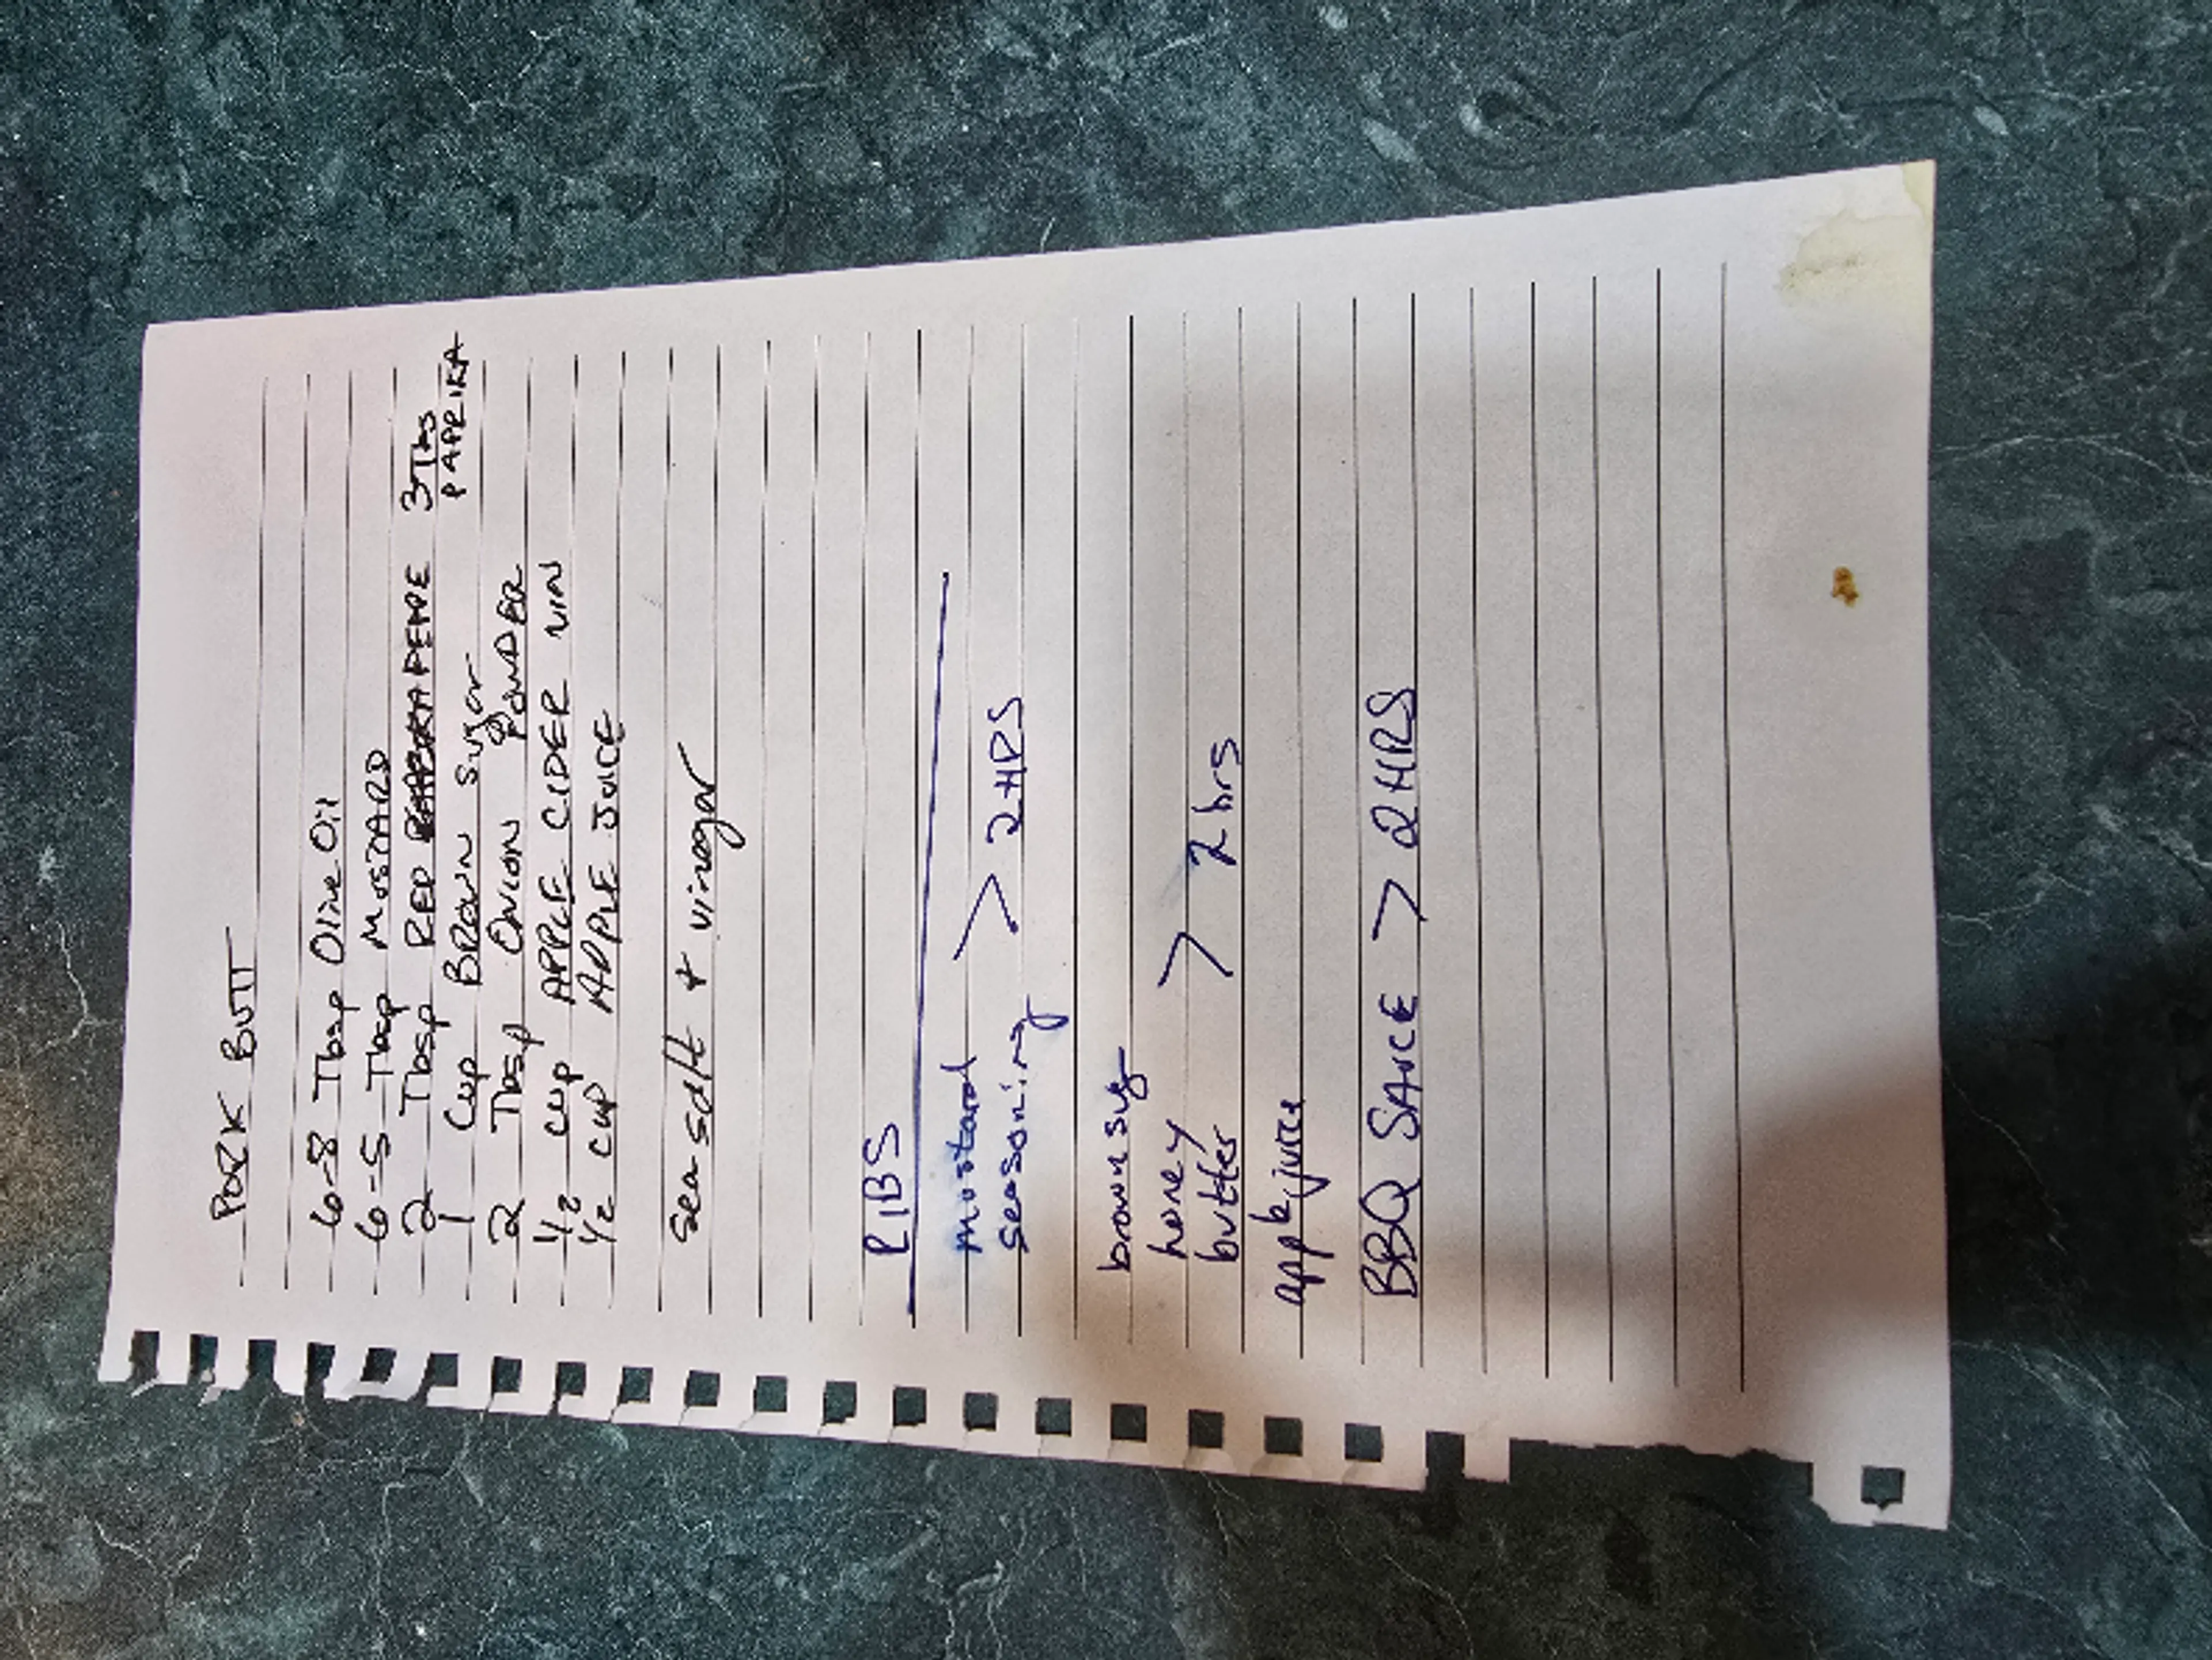 PORK BUTT
6-8 Tbsp Olive Oil
6-5 Tbsp MUSTARD
2 Tbsp RED PEPE 3 Tbs PAPRIKA
1 Cup BROWN Sugar
2 Tbsp ONION POWDER
1/2 CUP APPLE CIDER VIN
1/2 CUP APPLE JUICE
sea salt + vinegar
RIBS
mustard
seasoning > 2 HRS
brown sug
honey
butter > 2 hrs
apple juice
BBQ SAUCE > 2 HRS